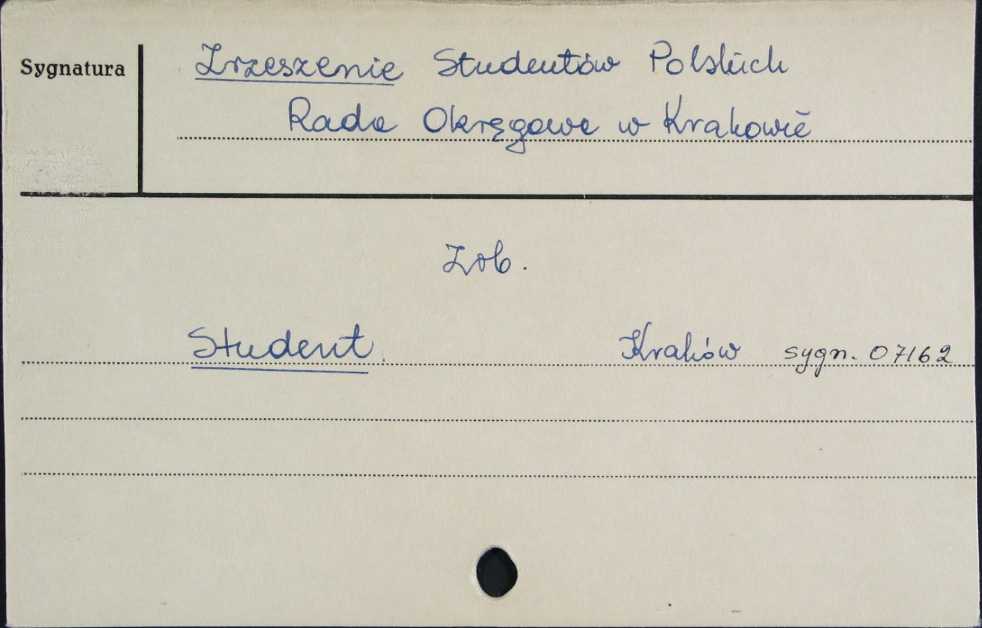 Sygnatura
Zrzeszenie Studentów Polskich
Rada Okręgowa w Krakowie
Zob.
Student Kraków sygn. 07162